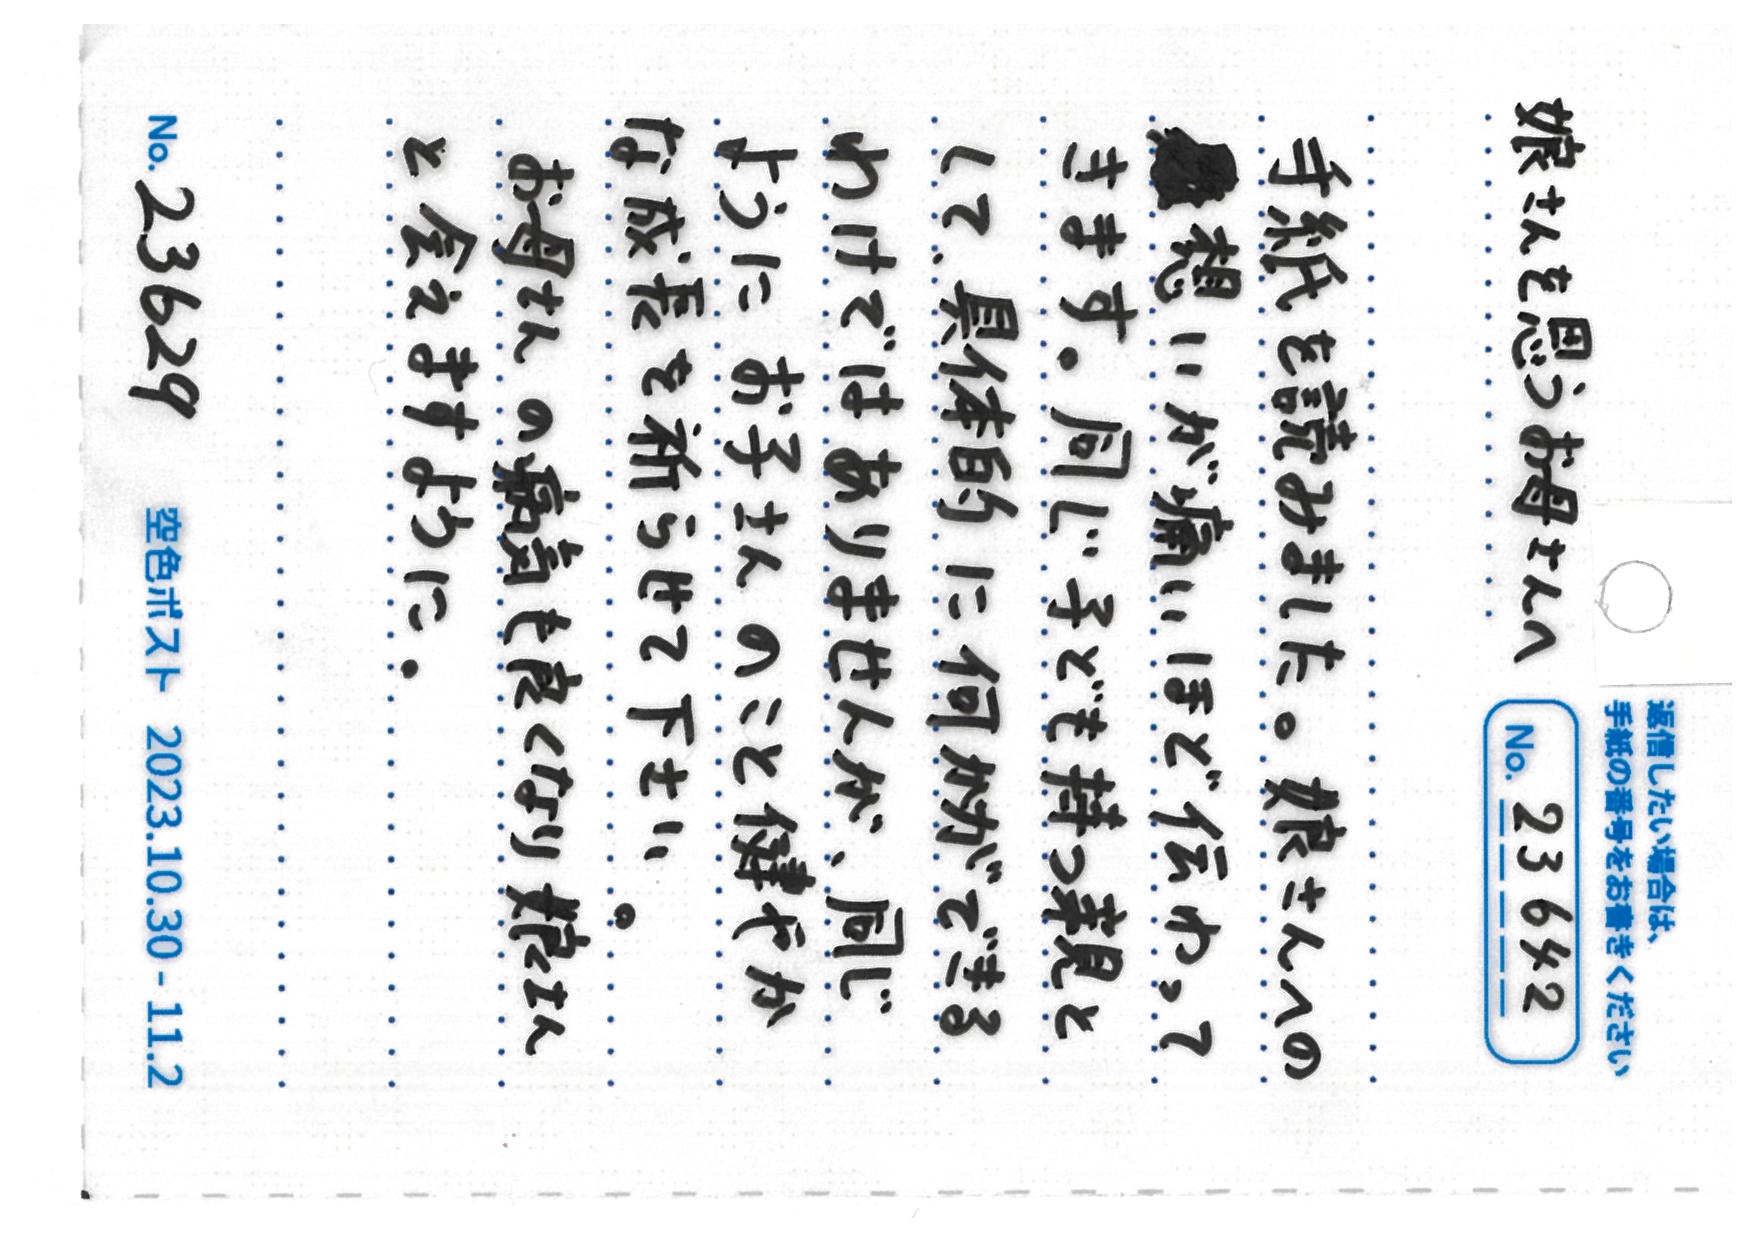 返信したい場合は、
手紙の番号をお書きください
娘さんを思うお母さんへ
No. 23642
手紙を読みました。娘さんへの
想いが痛いほど伝わって
きます。同じ子ども持つ親と
して、具体的に何かができる
わけではありませんが、同じ
ようにお子さんのこと健やか
な成長を祈らせて下さい。
お母さんの病気も良くなり娘さん
と会えますように。
No. 23629
空色ポスト 2023.10.30 - 11.2